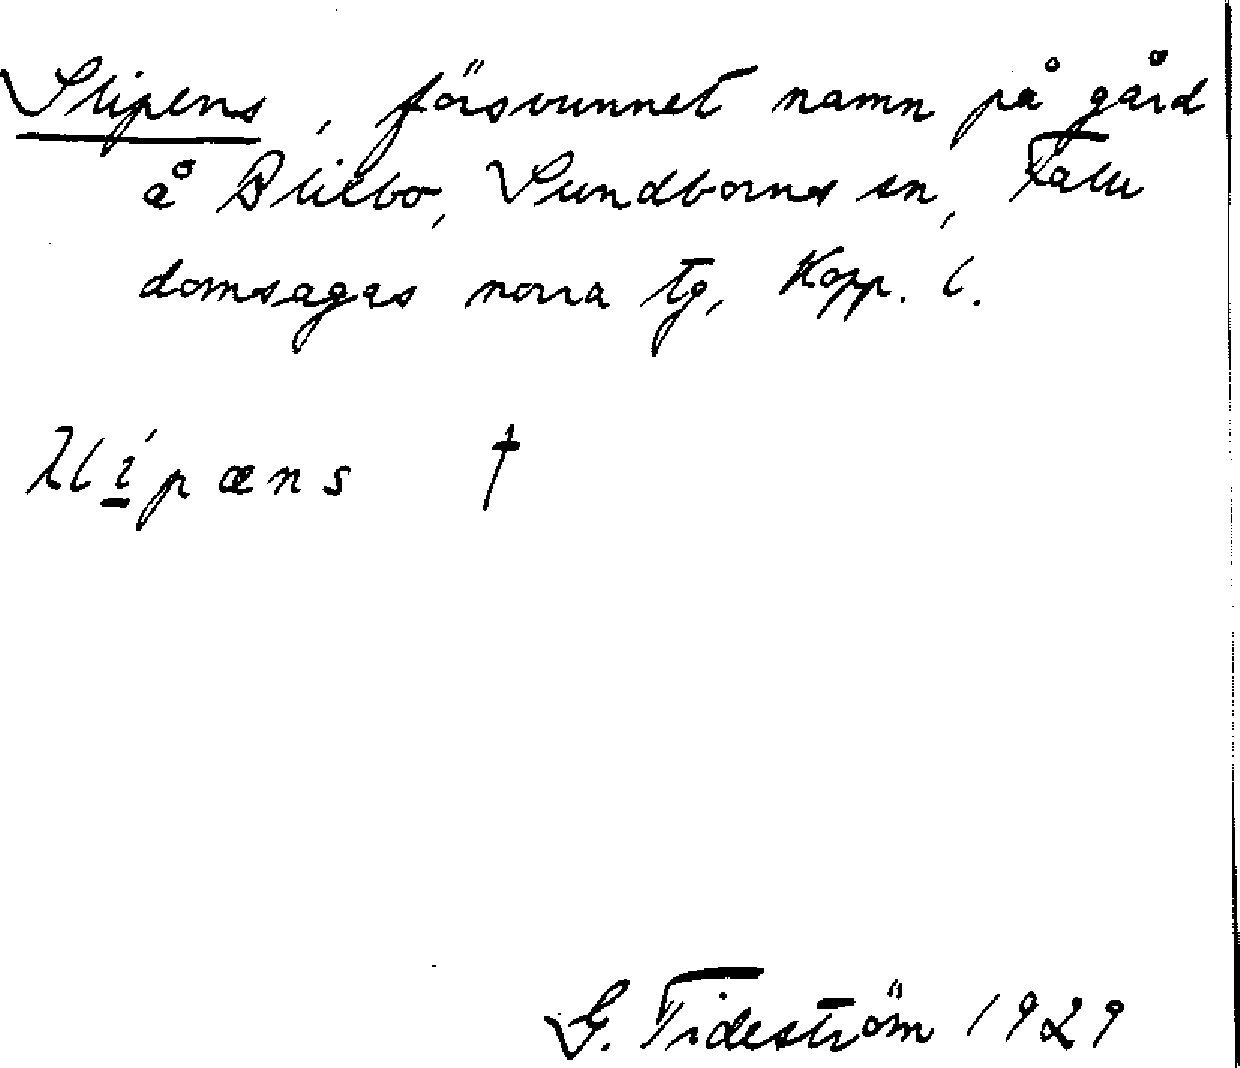 Slipens, försvunnet namn på gård
å Blixbo, Sundborns sn, Falu
domsagas norra tg, Kopp. l.
slípæns †
G. Tideström 1929